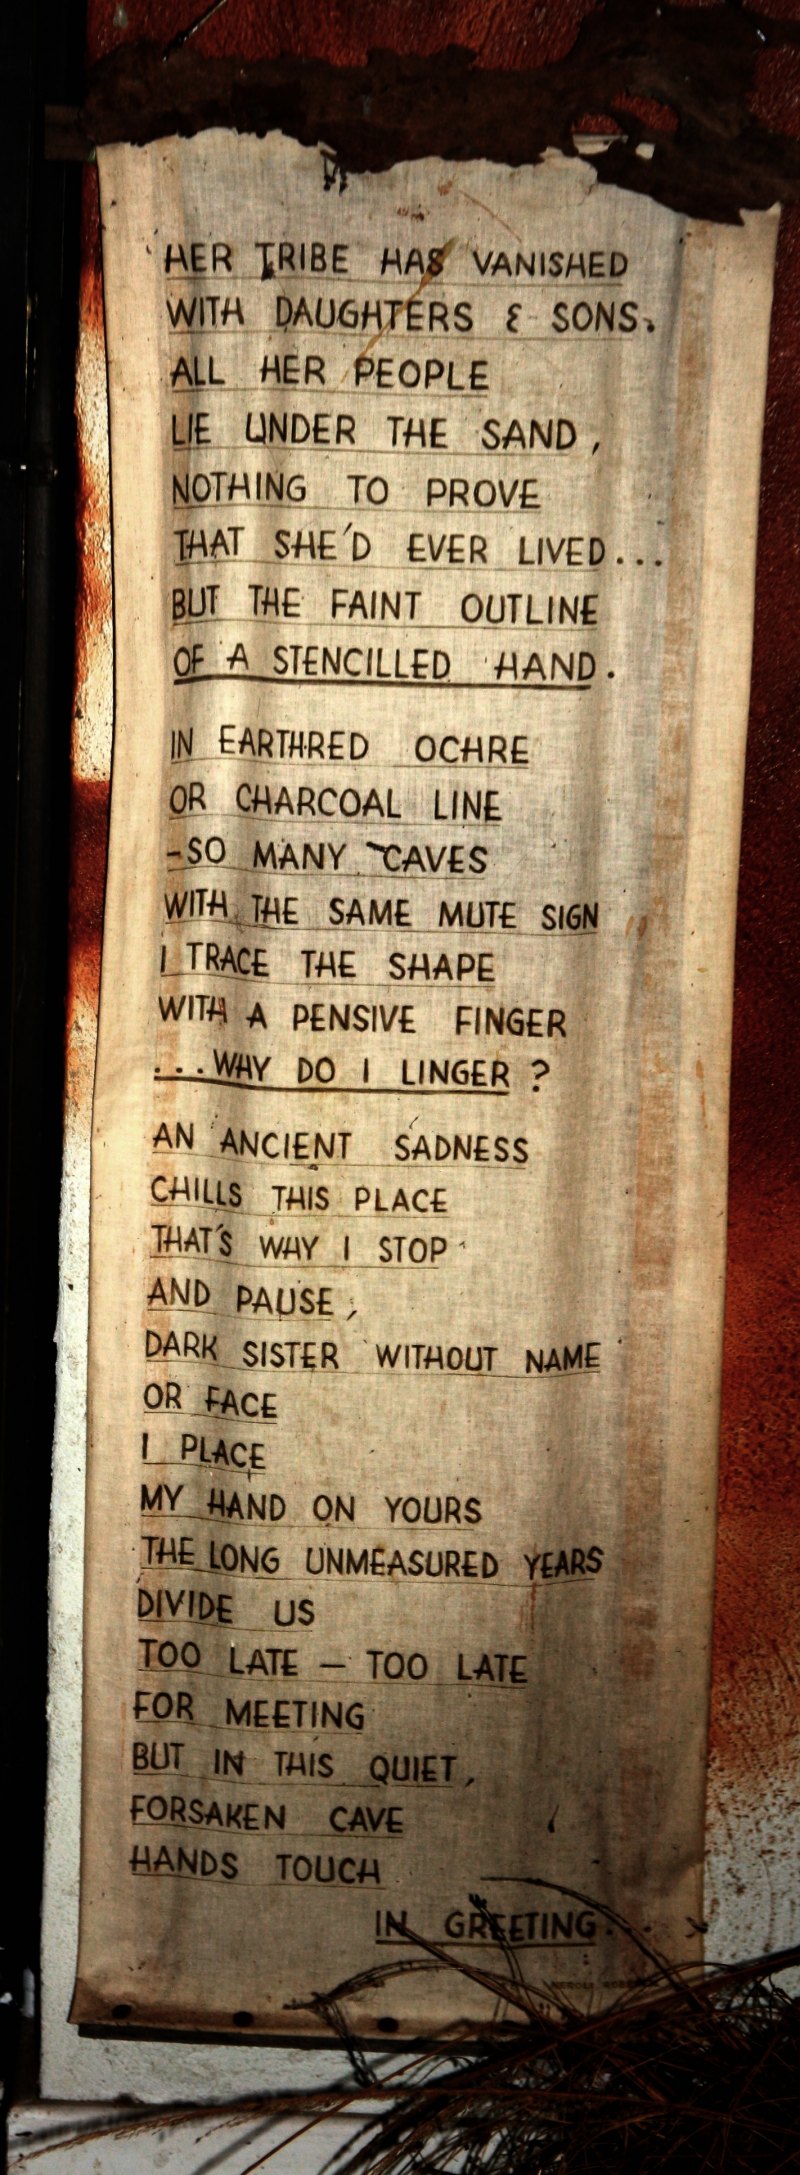 HER TRIBE HAS VANISHED
WITH DAUGHTERS & SONS.
ALL HER PEOPLE
LIE UNDER THE SAND,
NOTHING TO PROVE
THAT SHE'D EVER LIVED...
BUT THE FAINT OUTLINE
OF A STENCILLED HAND.
IN EARTH-RED OCHRE
OR CHARCOAL LINE
-SO MANY CAVES
WITH THE SAME MUTE SIGN
I TRACE THE SHAPE
WITH A PENSIVE FINGER
...WHY DO I LINGER?
AN ANCIENT SADNESS
CHILLS THIS PLACE
THAT'S WHY I STOP
AND PAUSE,
DARK SISTER WITHOUT NAME
OR FACE
I PLACE
MY HAND ON YOURS
THE LONG UNMEASURED YEARS
DIVIDE US
TOO LATE – TOO LATE
FOR MEETING
BUT IN THIS QUIET,
FORSAKEN CAVE
HANDS TOUCH
IN GREETING...